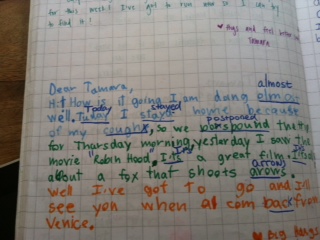 for this week! I've got to run now
to find it!
Hugs and feel better
Tamara
Dear Tamara,
almost
Hi! How is it going I am doing elmost
Today stayed
well. Tuday I stayd home because
postponed
of my cough, so we postspound the trip
for Thursday morning yesterday I saw the
It's
movie "Robin Hood". It's a great film. It's
arrows
about a fox that shoots arows.
Well I've got to go and I'll
see you when at com back from
Venice.
Big Hugs